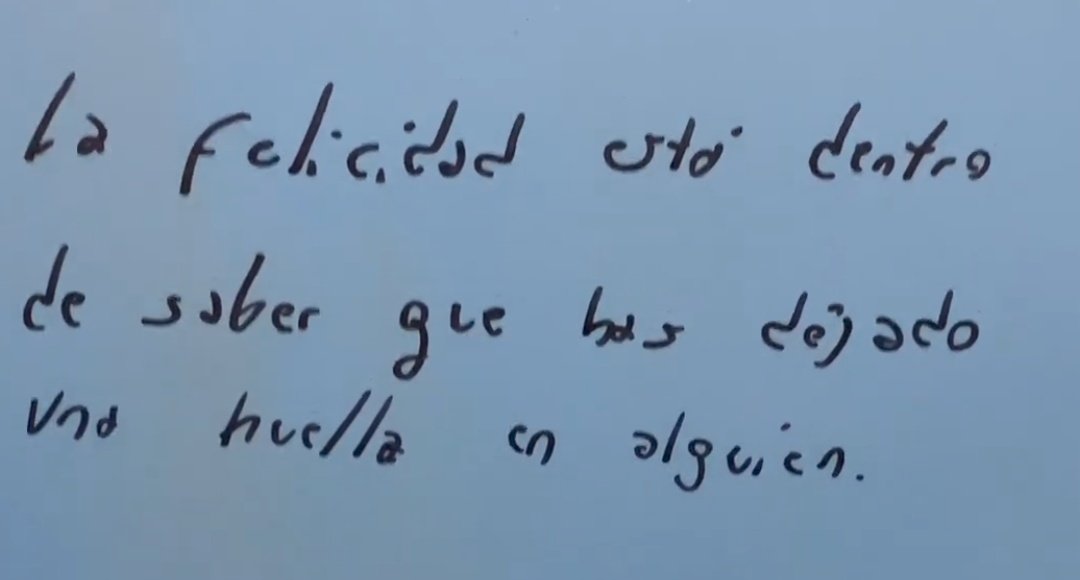 La felicidad está dentro
de saber que has dejado
una huella en alguien.